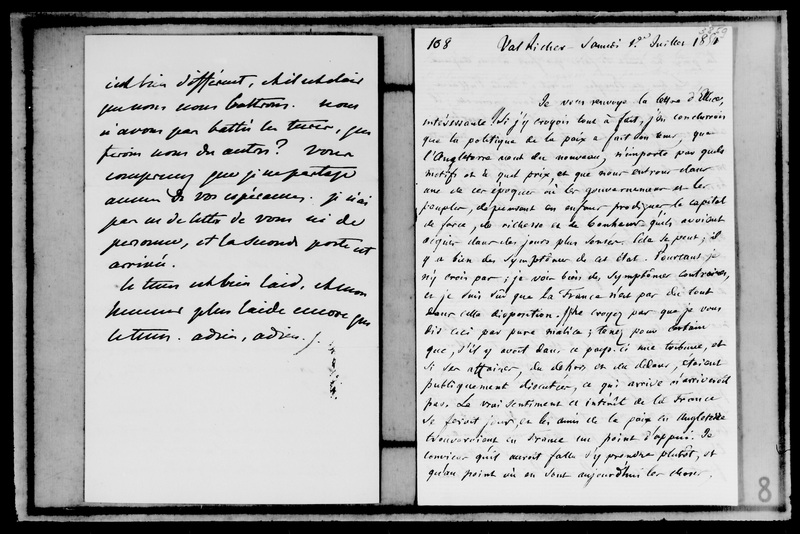 est bien différent, et il est clair
que nous nous battrons. nous
n'avons pas battu les turcs, que
ferons nous des autres ? vous
comprenez que je ne partage
aucune de vos espérances. je n'ai
pas eu de lettre de vous ni de
personne, et la seconde poste est
arrivée.
le tems est bien laid, et mon
humeur plus laide encore que
le tems. adieu, adieu.
108 Val Richer - Samedi 1er Juillet
Je vous renvoye la lettre d'Ellice,
intéressante. Si j'y croyois tout à fait, j'en conclurois
que la politique de la paix a fait son tems, que
l'Angleterre veut du nouveau, n'importe par quels
motifs et à quel prix et que nous entrons dans
une de ces époques où les gouvernemens et les
peuples, dépensent ou prodiguer le capital
de force, de richesse et de bonheur qu'ils avoient
acquis dans des jours plus sensés. Cela se peut ; il
y a bien des symptômes de cet état. Pourtant je
n'y crois pas ; je vois bien des symptômes contraires,
et je suis sûr que la France n'est pas du tout
dans cette disposition. Ne croyez pas que je vous
dis ceci par pure malice ; tenez pour certain
que, s'il y avoit dans ce pays-ci une tribune, et
si les affaires, du dehors et du dedans, étaient
publiquement discutées, ce qui arrive n'arriveroit
pas. Le vrai sentiment et intérêt de la France
se feroit jour, et les amis de la paix en Angleterre
trouveroient en France un point d'appui. Je
conviens qu'il auroit fallu s'y prendre plutôt, et
qu'au point où en sont aujourd'hui les choses,
8